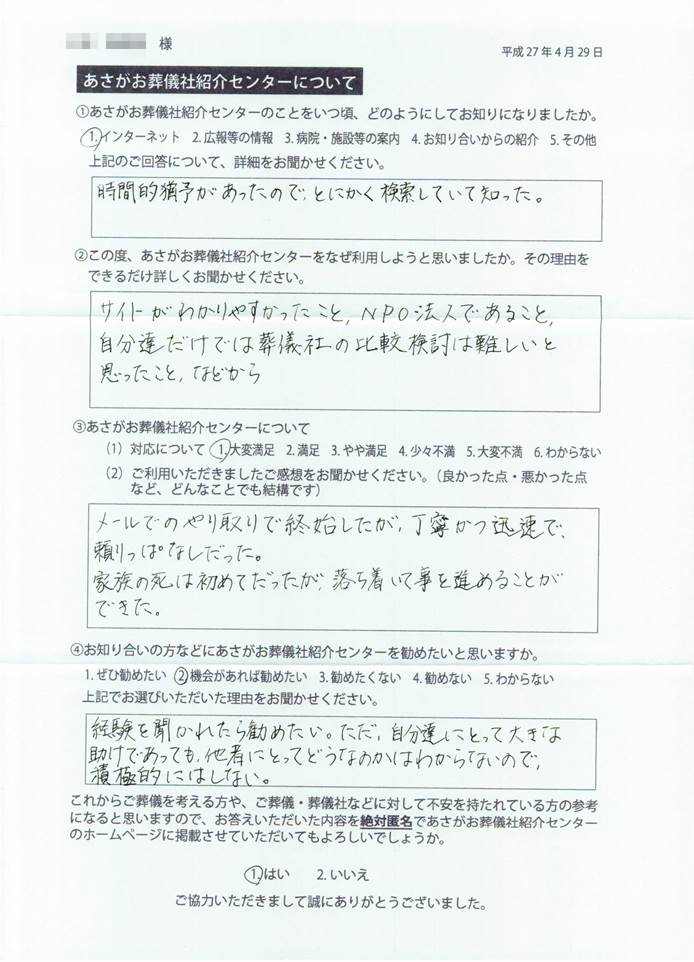 様
平成27年4月29日
あさがお葬儀社紹介センターについて
①あさがお葬儀社紹介センターのことをいつ頃、どのようにしてお知りになりましたか。
1.インターネット 2.広報等の情報 3.病院・施設等の案内 4.お知り合いからの紹介 5.その他
上記のご回答について、詳細をお聞かせください。
時間的猶予があったので、とにかく検索していて知った。
②この度、あさがお葬儀社紹介センターをなぜ利用しようと思いましたか。その理由を
できるだけ詳しくお聞かせください。
サイトがわかりやすかったこと、NPO法人であること、
自分達だけでは葬儀社の比較検討は難しいと
思ったこと、などから
③あさがお葬儀社紹介センターについて
(1) 対応について 1.大変満足 2.満足 3.やや満足 4.少々不満 5.大変不満 6.わからない
(2) ご利用いただきましたご感想をお聞かせください。(良かった点・悪かった点
など、どんなことでも結構です)
メールでのやり取りで終始したが、丁寧かつ迅速で、
頼りっぱなしだった。
家族の死は初めてだったが、落ち着いて事を進めることが
できた。
④お知り合いの方などにあさがお葬儀社紹介センターを勧めたいと思いますか。
1.ぜひ勧めたい 2.機会があれば勧めたい 3.勧めたくない 4.勧めない 5.わからない
上記でお選びいただいた理由をお聞かせください。
経験を聞かれたら勧めたい。ただ、自分達にとって大きな
助けであっても、他者にとってどうなのかはわからないので、
積極的にはしない。
これからご葬儀を考える方や、ご葬儀・葬儀社などに対して不安を持たれている方の参考
になると思いますので、お答えいただいた内容を絶対匿名であさがお葬儀社紹介センター
のホームページに掲載させていただいてもよろしいでしょうか。
1.はい 2.いいえ
ご協力いただきまして誠にありがとうございました。